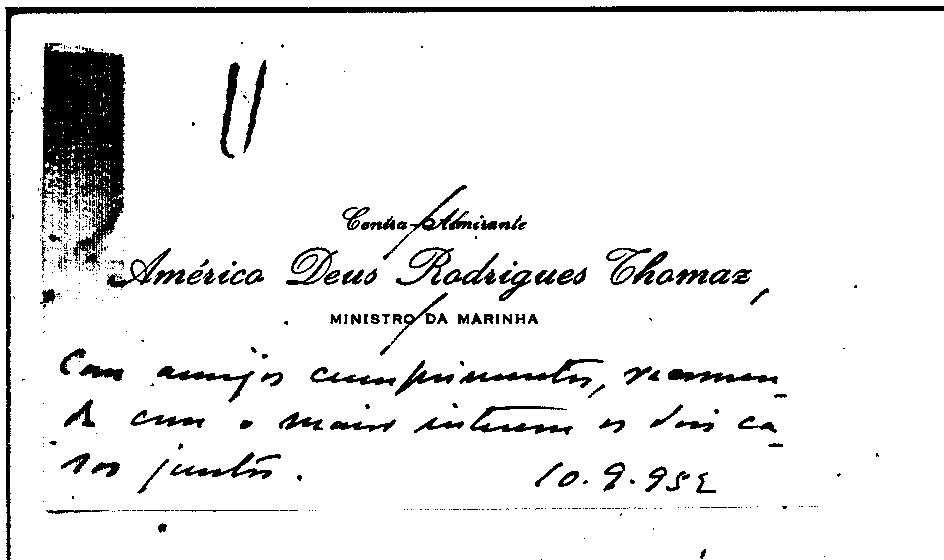 Contra-Almirante
Américo Deus Rodrigues Thomaz,
MINISTRO DA MARINHA
Com amigos cumprimentos, recomen
da com o maior interesse os dois ca-
sos juntos.
10.9.952